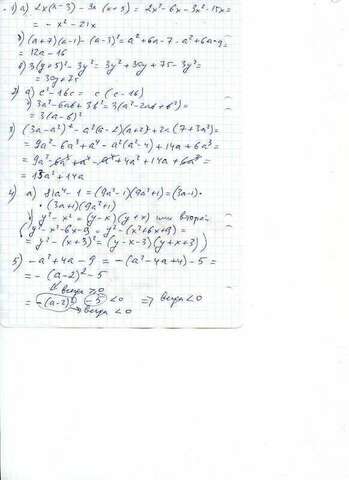 1) a) 2x(x-3) - 3x(x+5) = 2x² - 6x - 3x² - 15x =
= - x² - 21x
б) (a+7)(a-1) - (a-3)² = a² + 6a - 7 - a² + 6a - 9 =
= 12a - 16
в) 3(y+5)² - 3y² = 3y² + 30y + 75 - 3y² =
= 30y + 75
2) a) c² - 16c = c(c - 16)
б) 3a² - 6ab + 3b² = 3(a² - 2ab + b²) =
= 3(a - b)²
3) (3a - a²)² - a²(a-2)(a+2) + 2a(7 + 3a²) =
= 9a² - 6a³ + a⁴ - a²(a² - 4) + 14a + 6a³ =
= 9a² - 6a³ + a⁴ - a⁴ + 4a² + 14a + 6a³ =
= 13a² + 14a
4) a) 81a⁴ - 1 = (9a² - 1)(9a² + 1) = (3a - 1)·
·(3a + 1)(9a² + 1)
б) y² - x² = (y - x)(y + x) или второй
(y² - x² - 6x - 9 = y² - (x² + 6x + 9) =
= y² - (x + 3)² = (y - x - 3)(y + x + 3))
5) -a² + 4a - 9 = -(a² - 4a + 4) - 5 =
= -(a - 2)² - 5
всегда ≥ 0
= -(a - 2)² - 5 < 0 => всегда < 0
всегда < 0